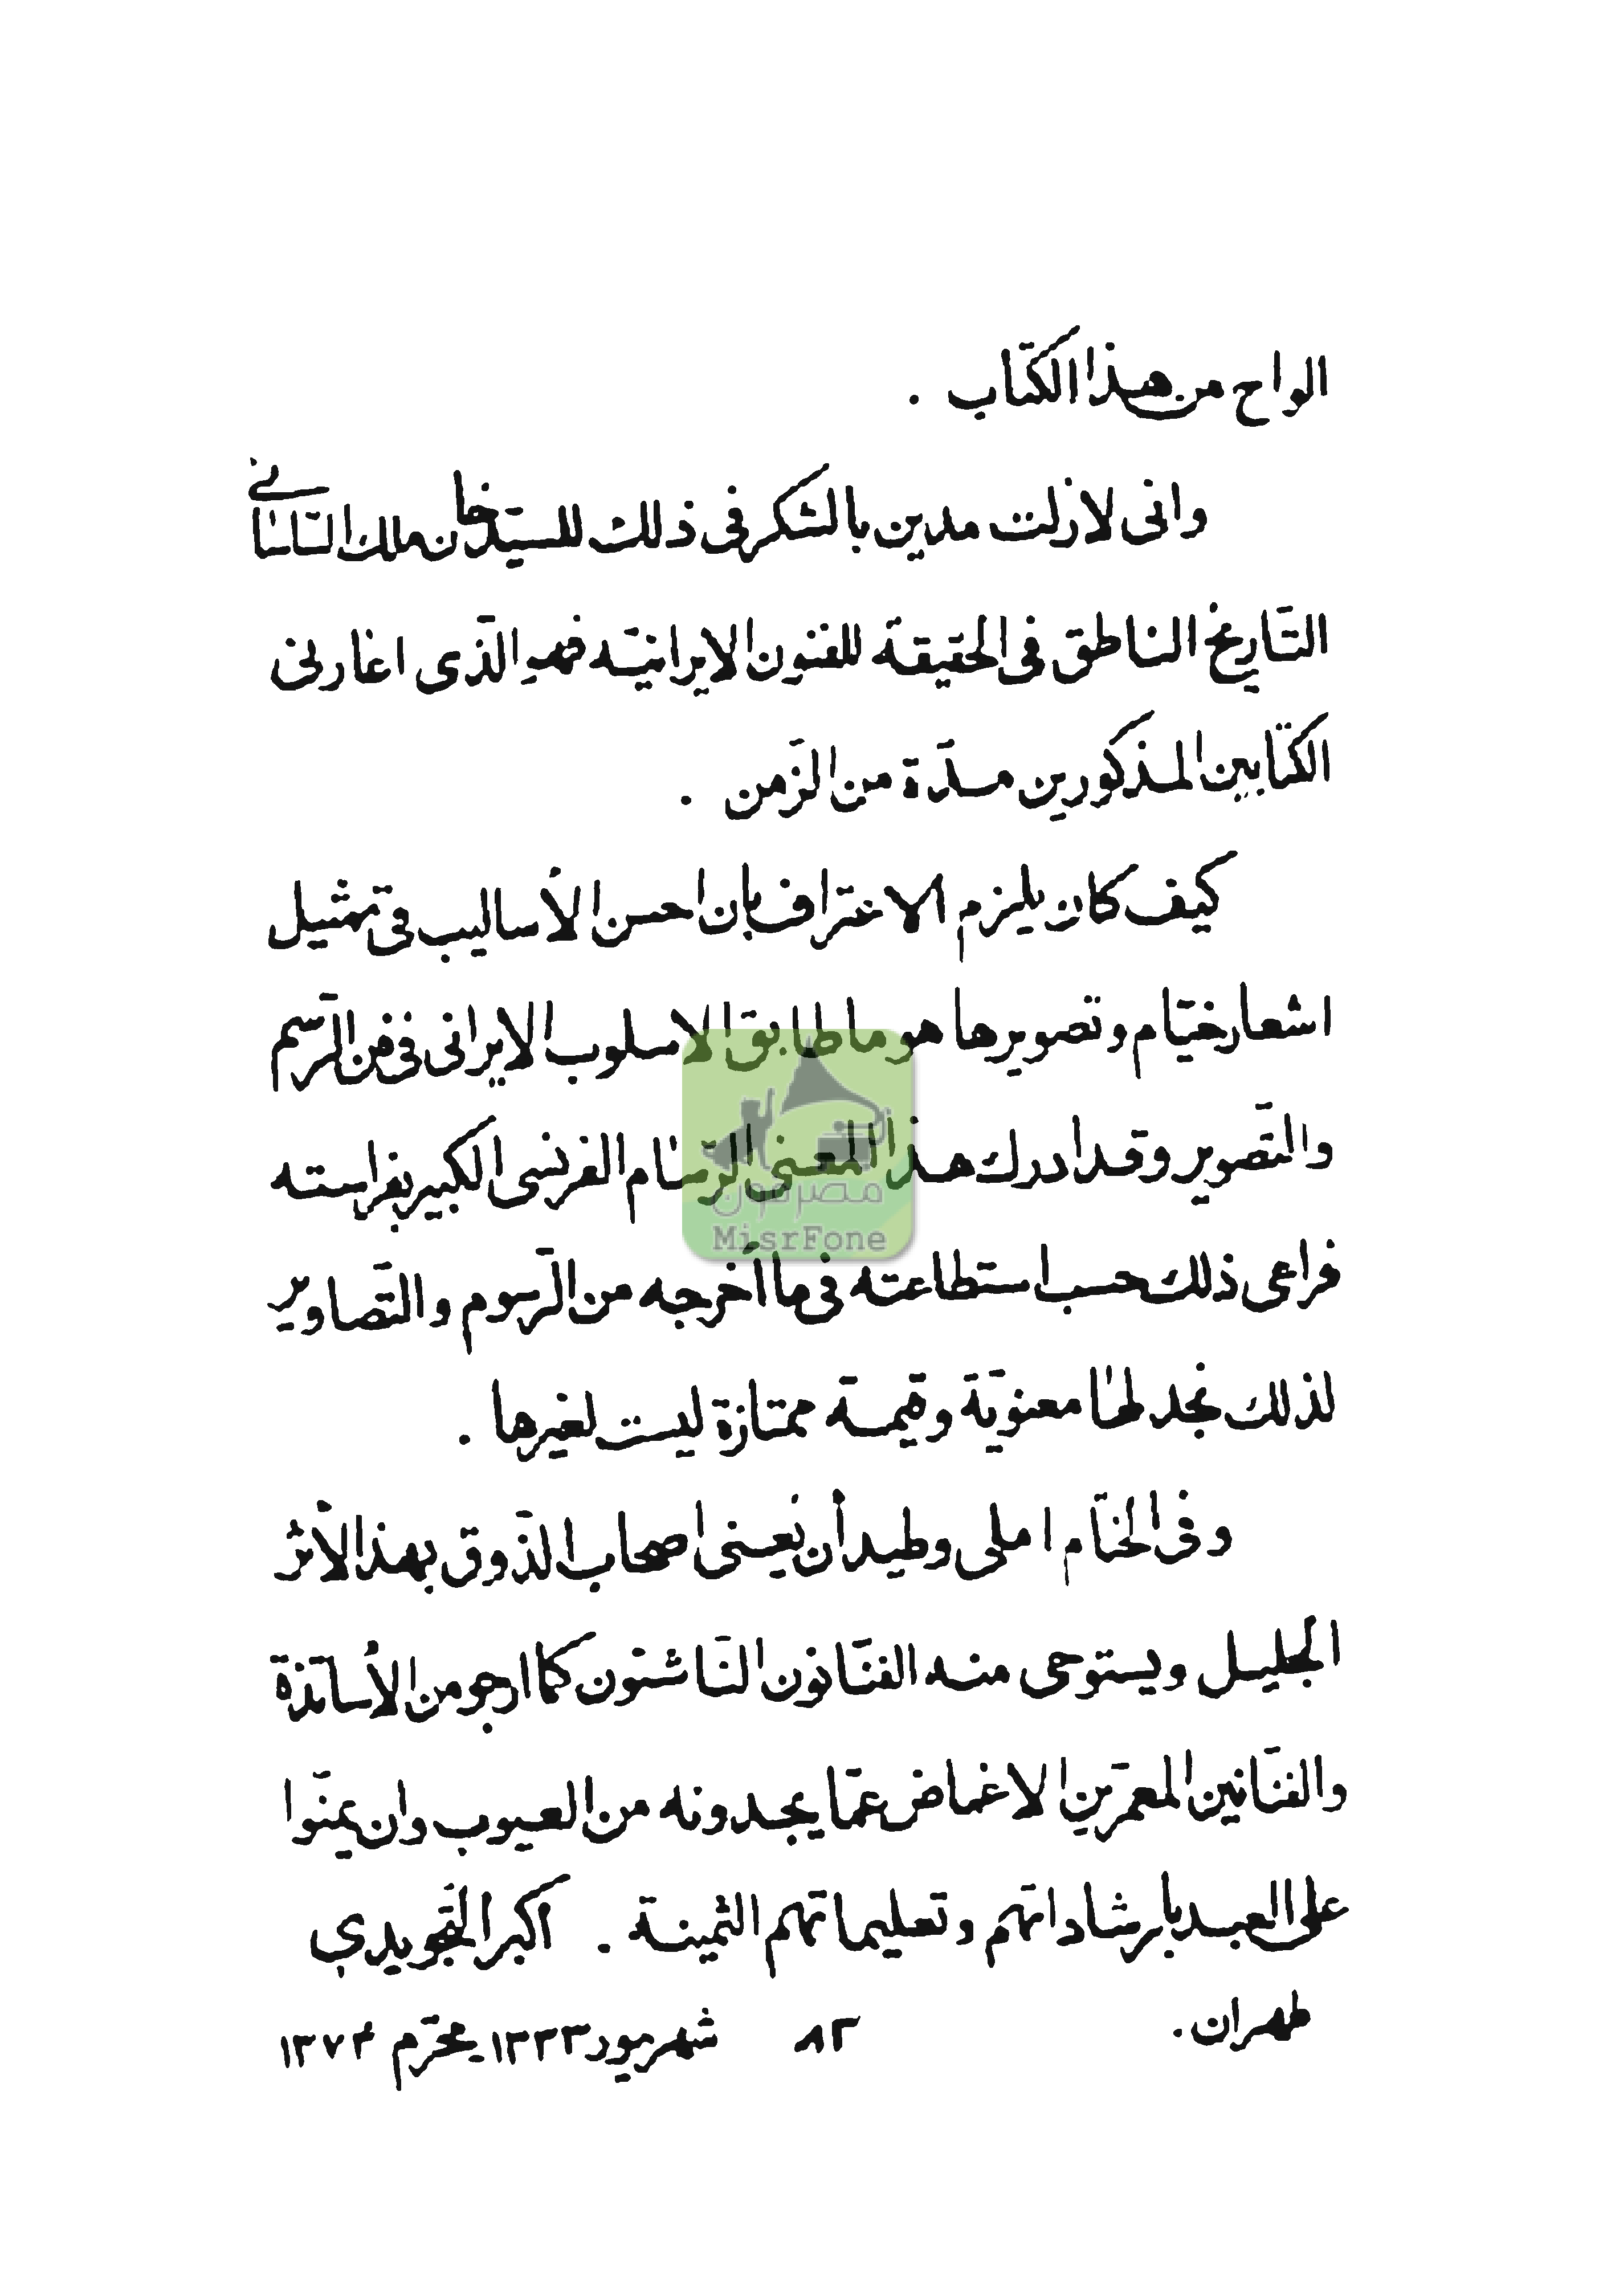 الواح من هذا الكتاب .
وانى لازلت مدين بالشكر فى ذلك للسيّد خان ملك السّاسانى
التّاريخ الناطق فى الحقيقة للفنون الايرانيّه فهو الّذى اعارنى
الكتابين المذكورين مدّة من الزّمن .
كيف كان يلزم الاعتراف بإن احسن الأساليب فى تمثيل
اشعار خيّام وتصويرها هو ما طابق الاسلوب الايرانى فى فن الرّسم
والتّصوير وقد ادرك هذا المعنى الرّسّام الفرنسى الكبير بفراسته
فراعى ذلك حسب استطاعته فى ما أخرجه من الرّسوم والتّصاوير
لذلك نجد لها معنويّة وقيمة ممتازة ليست لغيرها .
وفى الختام املى وطيد أن يُعنى اصحاب الذّوق بهذا الأثر
الجليل ويستوحى منه الفنّانون النّاشئون كما ارجو من الأساتذة
والفنّانين المعمّرين الاغماض عمّا يجدونه من العيوب وان يمنّوا
على العبد بأرشاداتهم وتعليماتهم الثمينة . اكبر التّجويدى
طهران . ٨٣ شهريور ١٣٣٣ محرّم ١٣٧٤
مصرفون
MisrFone